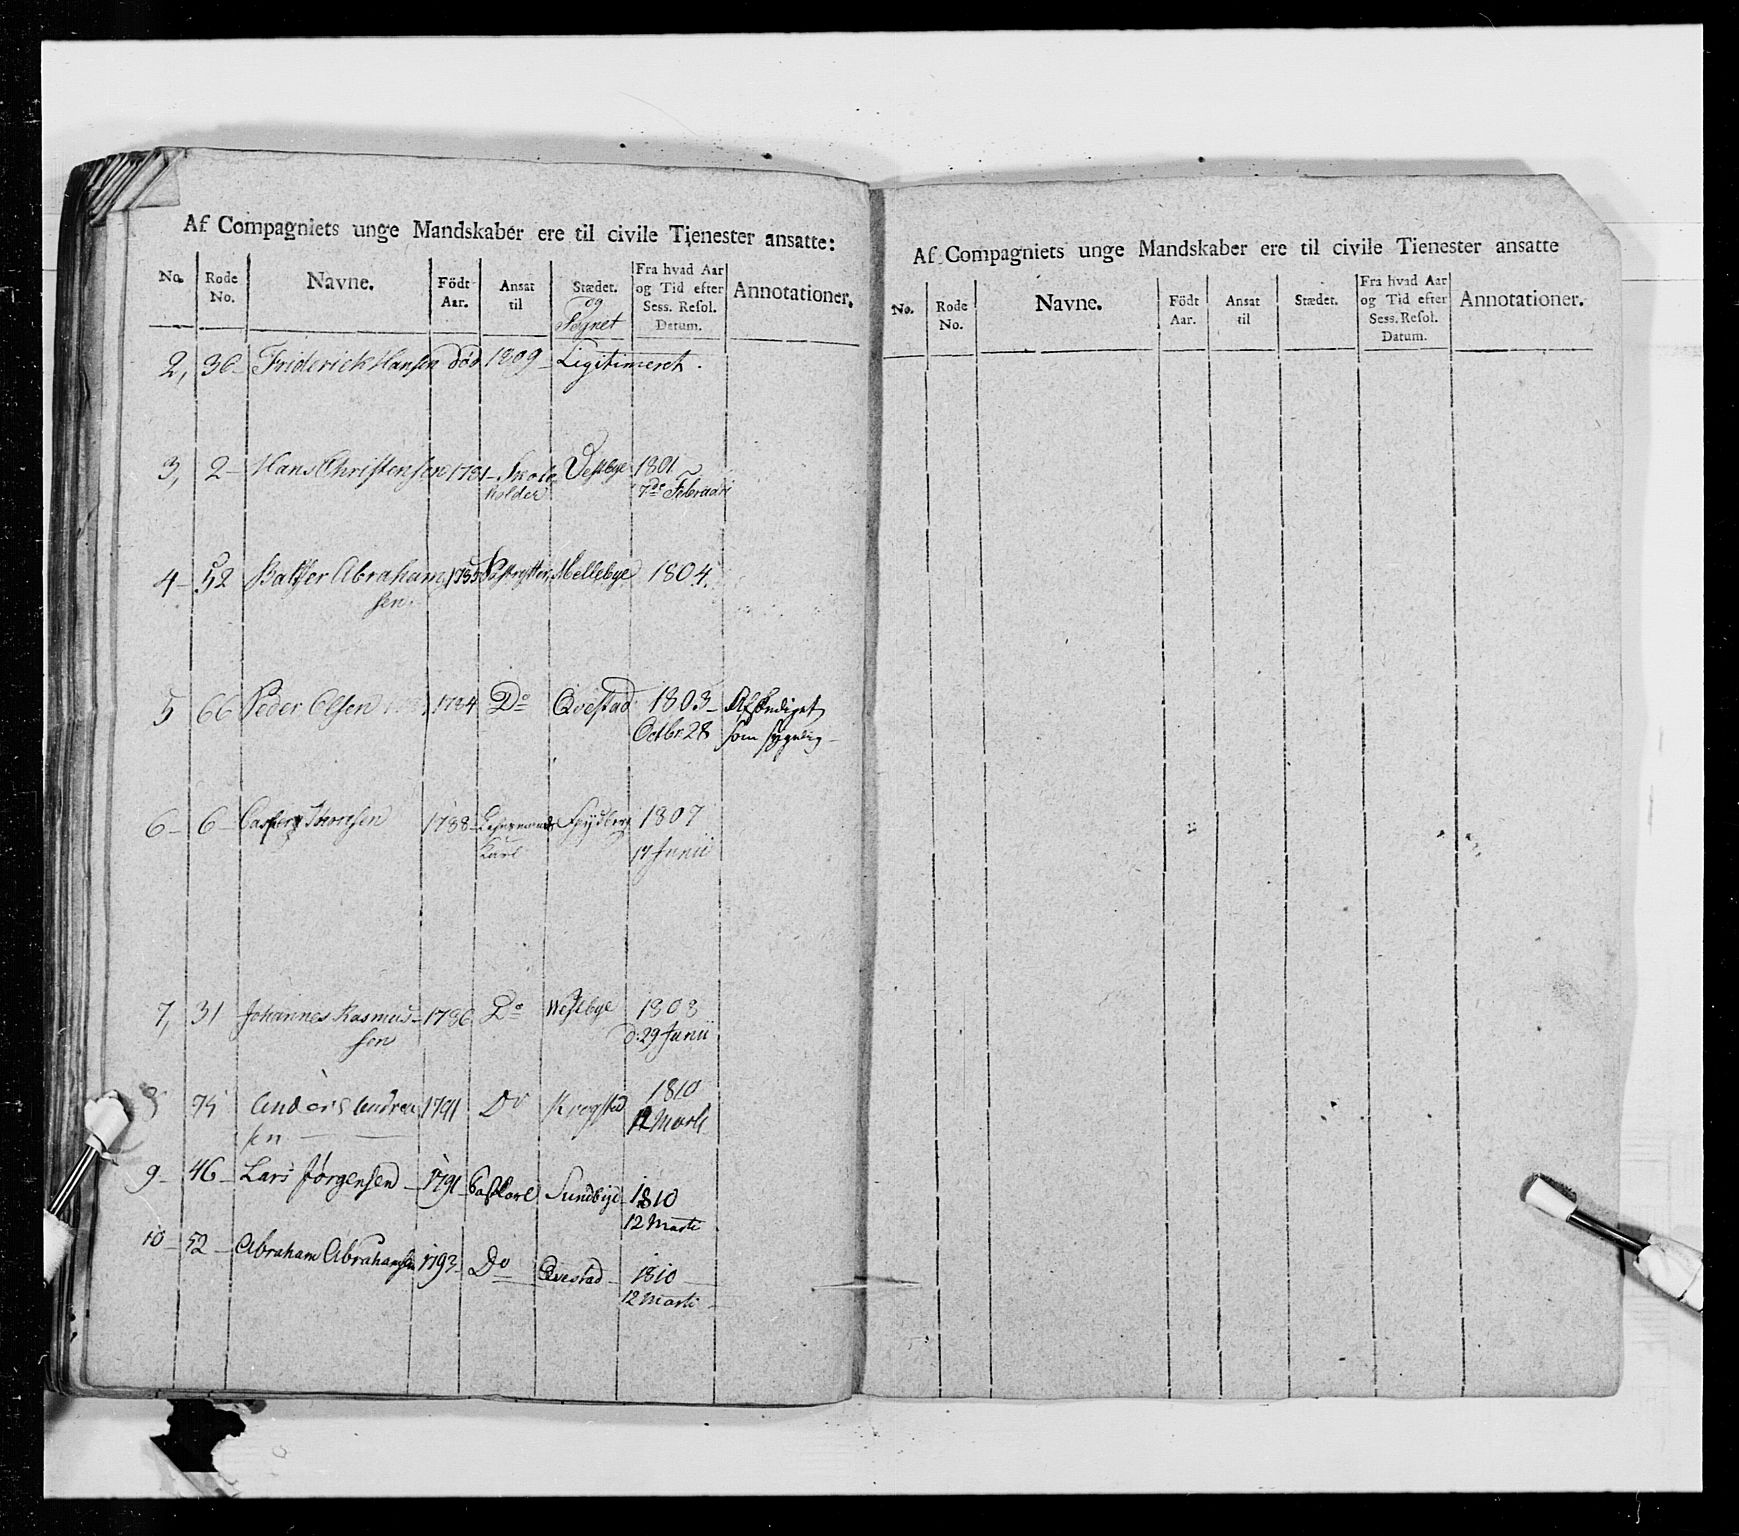 Af Compagniets unge Mandskaber ere til civile Tienester ansatte:
No. Rode No. Navne. Födt Aar. Ansat til Stædet. og Fra hvad Aar og Tid efter Sess. Resol. Datum. Annotationer.
2, 36 Friderick Hansen död 1809 - Legitimeret.
3, 2 - Hans Christensen 1781 - Skole Vestbye 1801
holder 7de Februari
4 - 52 Abraham 1785 Postrytter Mellebye 1804.
sen
5 66 Peder Olsen 1784 Do Qvestad 1803 - Afskediget
Octbr 28 som sygelig -
6 - 6 - 1788 - 1807
Karl 17 Junii
7, 31 Johannes Rasmus - 1786 Do Westbye 1803
sen d: 29 Junii
8 75 Anders Andrea 1791 Do Krogstad 1810
sen 12 Marti
9 - 46 - Lars Jørgensen - 1791 - Sundbye - 1810
12 Marti
10 - 52 - Abraham Abrahamsen 1793 - Do Qvestad - 1810
12 Marti -
Af Compagniets unge Mandskaber ere til civile Tienester ansatte
No. Rode No. Navne. Födt Aar. Ansat til Stædet. Fra hvad Aar og Tid efter Sess. Resol. Datum. Annotationer.